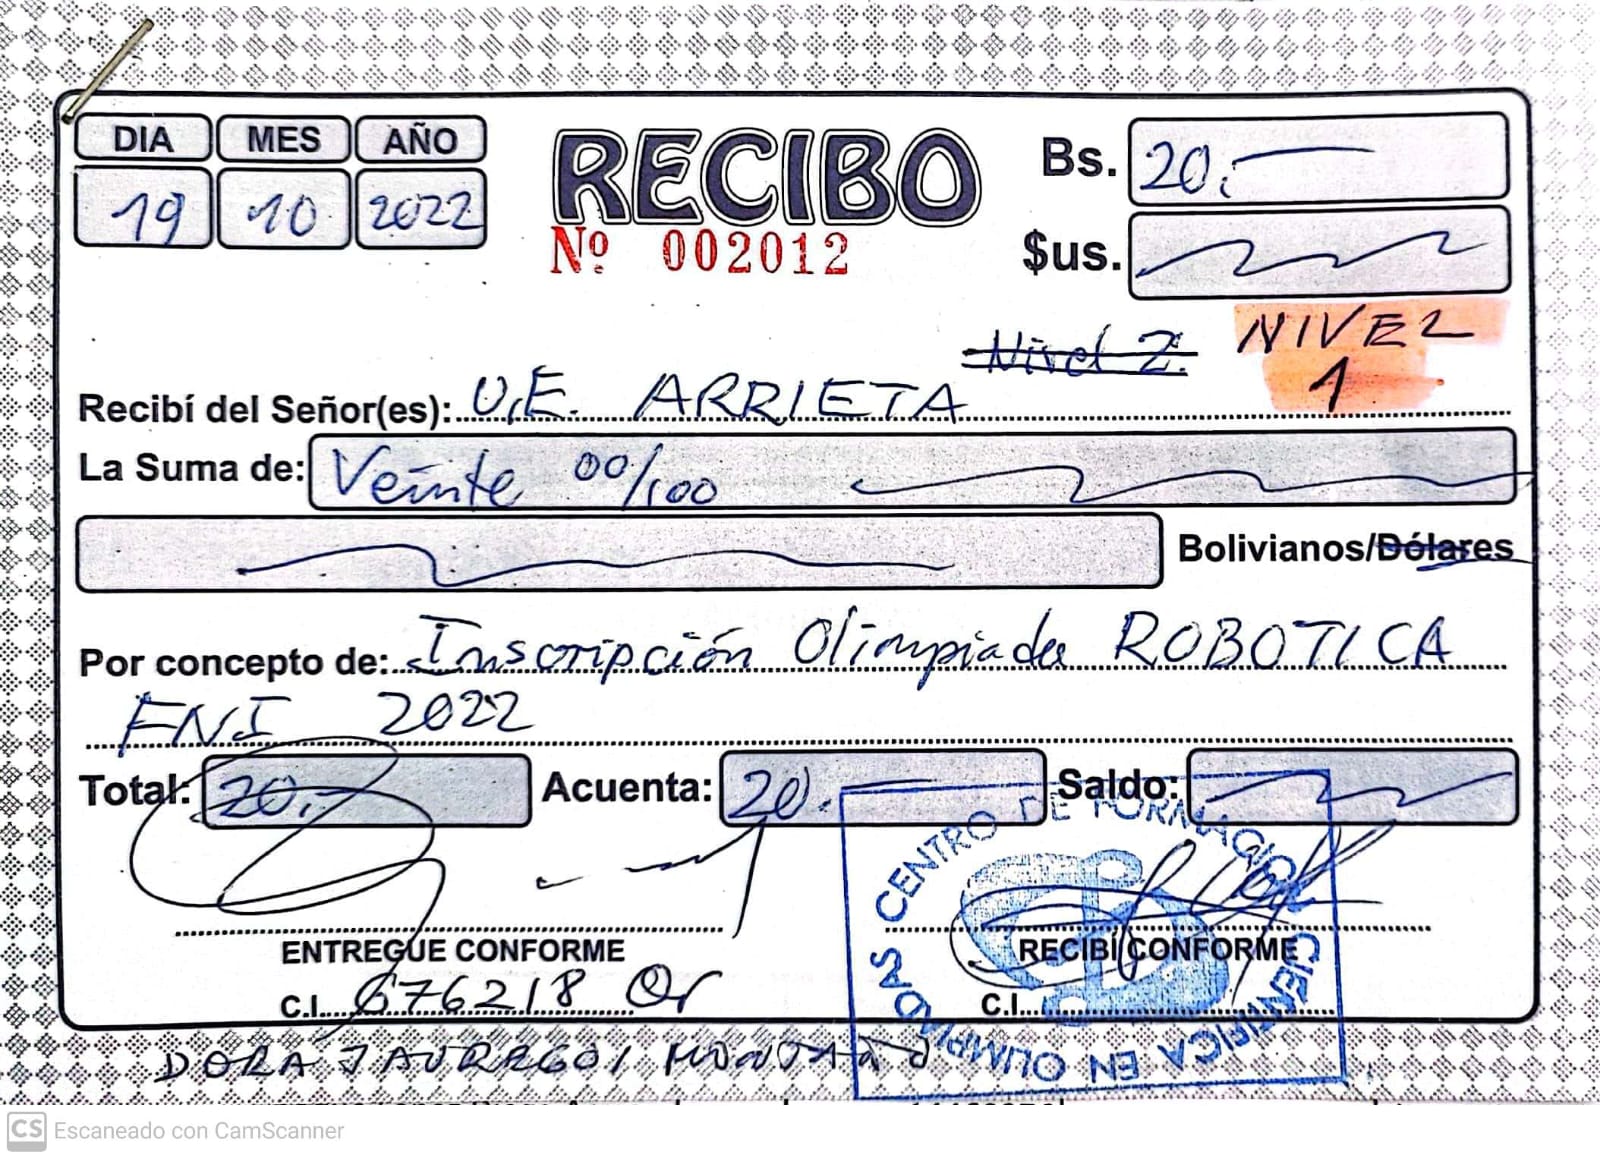 DIA MES AÑO
19 10 2022
RECIBO
Nº 002012
Bs. 20.
$us.
Nivel 2. NIVEL
1
Recibí del Señor(es): U.E. ARRIETA
La Suma de: Veinte 00/100
Bolivianos/Dólares
Por concepto de: Inscripción Olimpiada ROBOTICA
FNI 2022
Total: 20.- Acuenta: 20. Saldo:
ENTREGUE CONFORME RECIBÍ CONFORME
C.I. 676218 Or C.I.
DORA JAUREGUI MONTAÑO
CENTRO DE FORMACION CIENTIFICA EN OLIMPIADAS
CS Escaneado con CamScanner